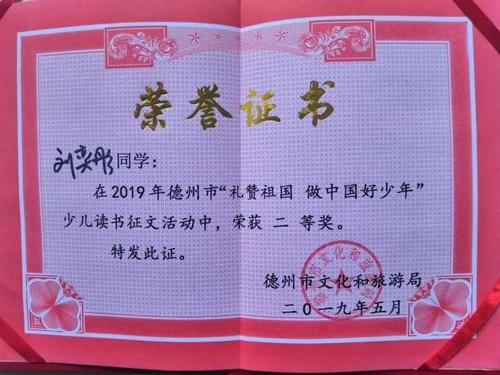 荣誉证书
刘奕彤同学：
在2019年德州市“礼赞祖国 做中国好少年”
少儿读书征文活动中，荣获 二 等奖。
特发此证。
德州市文化和旅游局
二〇一九年五月
德州市文化和旅游局